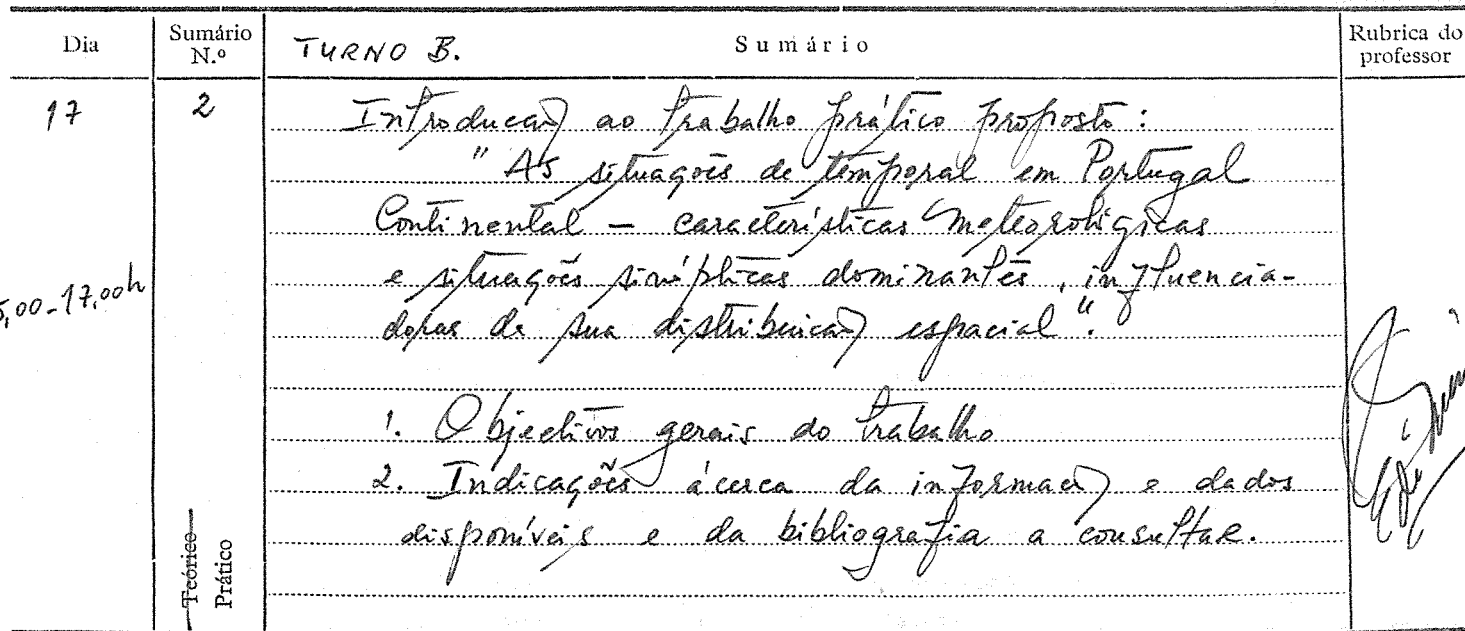 Dia
Sumário N.º
TURNO B.
Sumário
Rubrica do professor
17
2
Introdução ao trabalho prático proposto:
" As situações de temporal em Portugal
Continental — características meteorológicas
e situações sinópticas dominantes, influencia-
doras de sua distribuição espacial".
5,00-17,00h
1. Objectivos gerais do trabalho
2. Indicações ácerca da informação e dados
disponíveis e da bibliografia a consultar.
Teórico
Prático